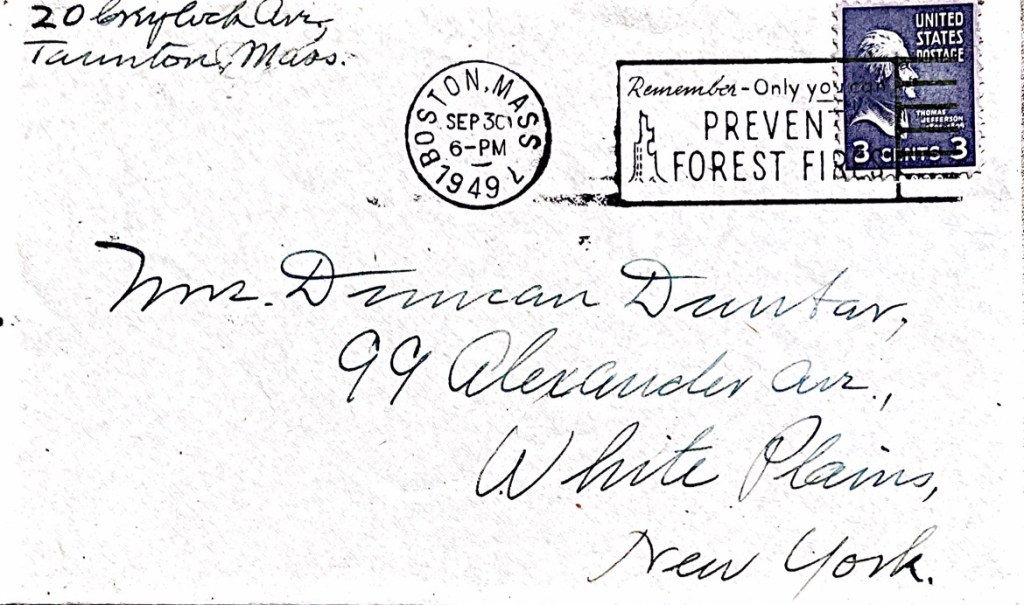 20 Greylock Ave,
Taunton, Mass.
BOSTON, MASS
SEP 30
6-PM
1949
Remember - Only you can
PREVENT
FOREST FIRES
UNITED
STATES
POSTAGE
THOMAS
JEFFERSON
3 CENTS 3
Mrs. Duncan Dunbar,
99 Alexander Ave.,
White Plains,
New York.